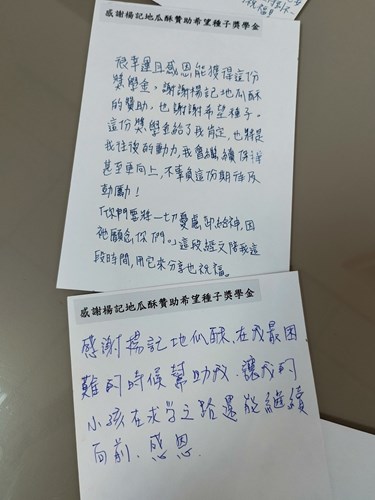 感謝楊記地瓜酥贊助希望種子獎學金
很幸運且感恩能獲得這份
獎學金。謝謝楊記地瓜酥
的贊助。也謝謝希望種子。
這份獎學金給了我肯定,也將是
我往後的動力,我會繼續保持
甚至更向上,不辜負這份期待及
勉勵!
「你們要將一切憂慮卸給神,因
祂顧念你們。」這段經文陪我這
段時間,用它來分享也祝福。
感謝楊記地瓜酥贊助希望種子獎學金
感謝楊記地瓜酥,在我最困
難的時候幫助我,讓我的
小孩在求学之路還能繼續
向前.感恩.